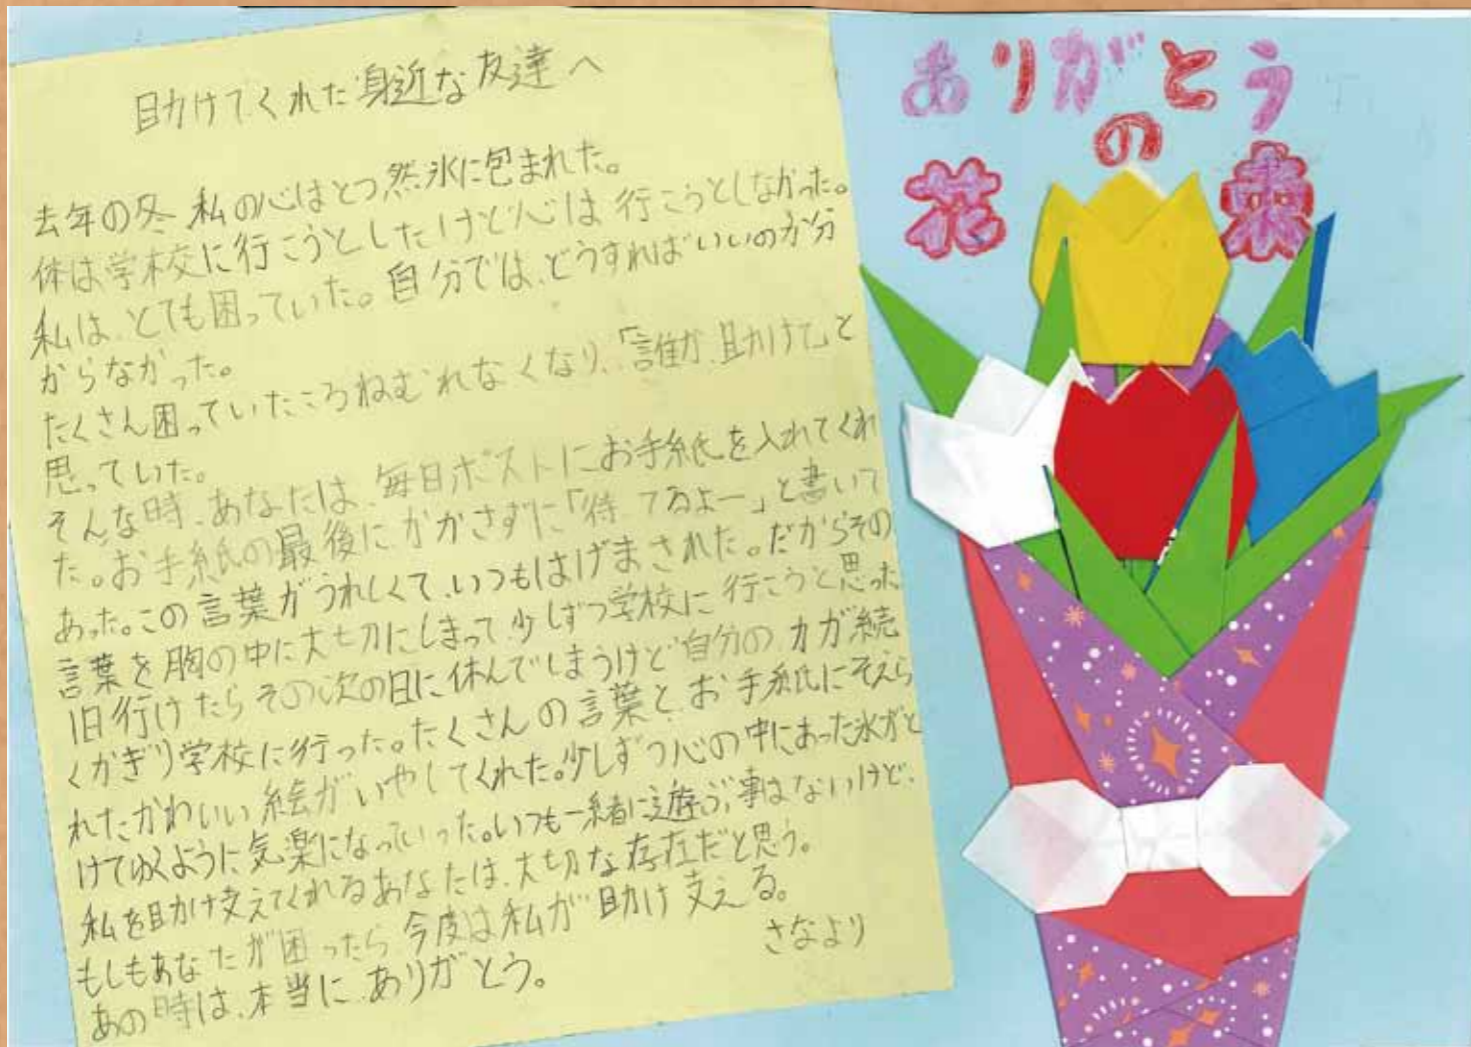 助けてくれた身近な友達へ
去年の冬、私の心はとつ然、氷に包まれた。
体は学校に行こうとしたけど心は行こうとしなかった。
私は、とても困っていた。自分では、どうすればいいのか分
からなかった。
たくさん困っていたころねむれなくなり、「誰か、助けて」と
思っていた。
そんな時、あなたは、毎日ポストにお手紙を入れてくれ
た。お手紙の最後に、かかさずに「待ってるよー」と書いて
あった。この言葉がうれしくて、いつもはげまされた。だからその
言葉を胸の中に大切にしまって少しずつ学校に行こうと思った。
1日行けたらその次の日に休んでしまうけど自分の力が続
くかぎり学校に行った。たくさんの言葉と、お手紙にそえら
れたかわいい絵がいやしてくれた。少しずつ心の中にあった氷がと
けてゆくように気楽になっていった。いつも一緒に遊ぶ事はないけど、
私を助け支えてくれるあなたは、大切な存在だと思う。
もしもあなたが困ったら今度は私が助け支える。
あの時は、本当に、ありがとう。
さなより
ありがとう
の
花束